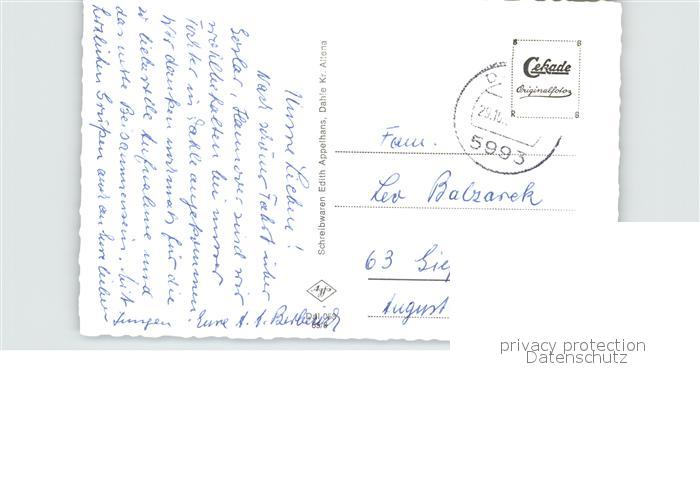 Unsre Lieben!
Nach schöner Fahrt über
Goslar, Hannover sind wir
wohlbehalten bei unsrer
Tochter in Dahle angekommen.
Wir danken nochmals für die
so liebevolle Aufnahme und
das nette Beisammensein. Mit
herzlichen Grüßen auch an Eure lieben
Jungen Eure
Schreibwaren Edith Appelhans, Dahle Kr. Altena
Cekade
Originalfoto
5993
Fam.
Leo Balzarek
63
August
privacy protection
Datenschutz